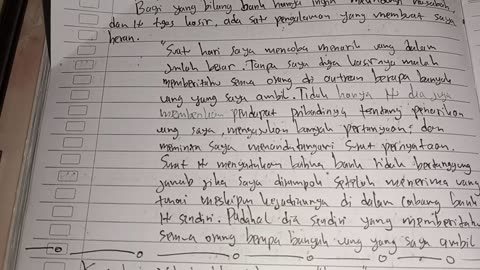 Bagi yang bilang bank hanya ingin melindungi nasabah,
dan tugas kasir, ada satu pengalaman yang membuat saya
heran.
"Suat hari saya mencoba menarik uang dalam
jumlah besar. Tanpa saya duga kasirnya malah
memberitahu semua orang di antrean berapa banyak
uang yang saya ambil. Tidak hanya itu dia juga
memberikan pendapat pribadinya tentang penarikan
uang saya, mengajukan banyak pertanyaan, dan
meminta saya menandatangani suat pernyataan.
Surat itu mengatakan bahwa bank tidak bertanggung
jawab jika saya dirampok setelah menerima uang
tunai meskipun kejadiannya di dalam cabang bank
itu sendiri. Padahal dia sendiri yang memberitahu
semua orang berapa banyak uang yang saya ambil